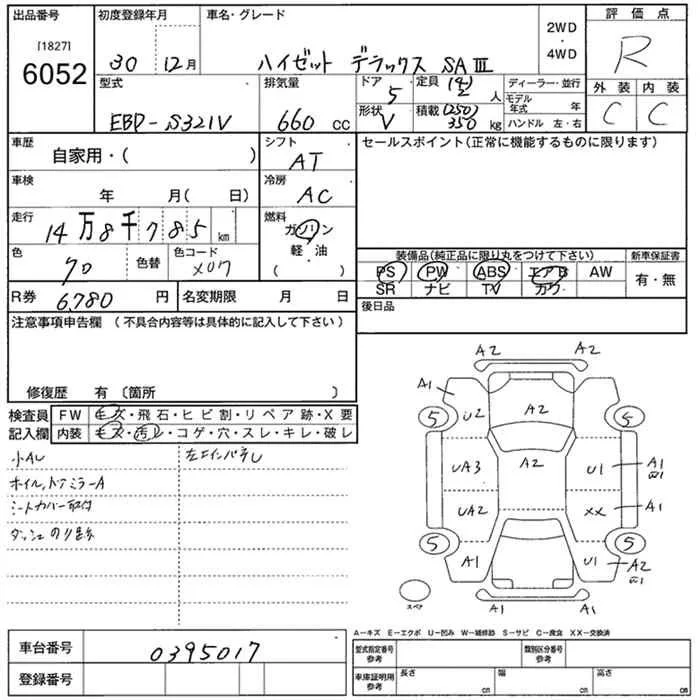 出品番号 初度登録年月 車名・グレード 2WD・4WD 評価点
[1827]
6052 30 12月 ハイゼット デラックス SAⅢ R
型式 排気量 ドア 定員 (4) ディーラー・並行 外装 内装
5 2 人 モデル年式 年
EBD-S321V 660 cc 形状 V 積載 (250) 350 kg ハンドル 左・右 C C
車歴 シフト セールスポイント(正常に機能するものに限ります)
自家用・( ) AT
車検 冷房
年 月( 日) AC
走行 燃料
14万8千785 km ガソリン
軽・油
( )
色 色替 色コード 装備品(純正品に限り丸をつけて下さい) 新車保証書
クロ X07 PS PW ABS エアB AW 有・無
SR ナビ TV カワ
R券 6,780 円 名変期限 月 日 後日品
注意事項申告欄 (不具合内容等は具体的に記入して下さい)
修復歴 有 〔箇所 〕
検査員 FW キズ・飛石・ヒビ割・リペア跡・X要
記入欄 内装 キズ・汚レ・コゲ・穴・スレ・キレ・破レ
小AL
ホイル,ドアミラーA
シートカバー取付
ダッシュ のり跡
A2 A2
A1 U2 A2
5 5
UA3 A2 U1 A1
UA2 XX A1
5 5
A1 U1 A2
A1 A1
スペア
A-キズ E-エクボ U-凹み W-補修跡 S-サビ C-腐食 XX-交換済
車台番号 0395017 型式指定番号 参考 類別区分番号 参考
登録番号 車庫証明用 参考 長さ cm 幅 cm 高さ cm